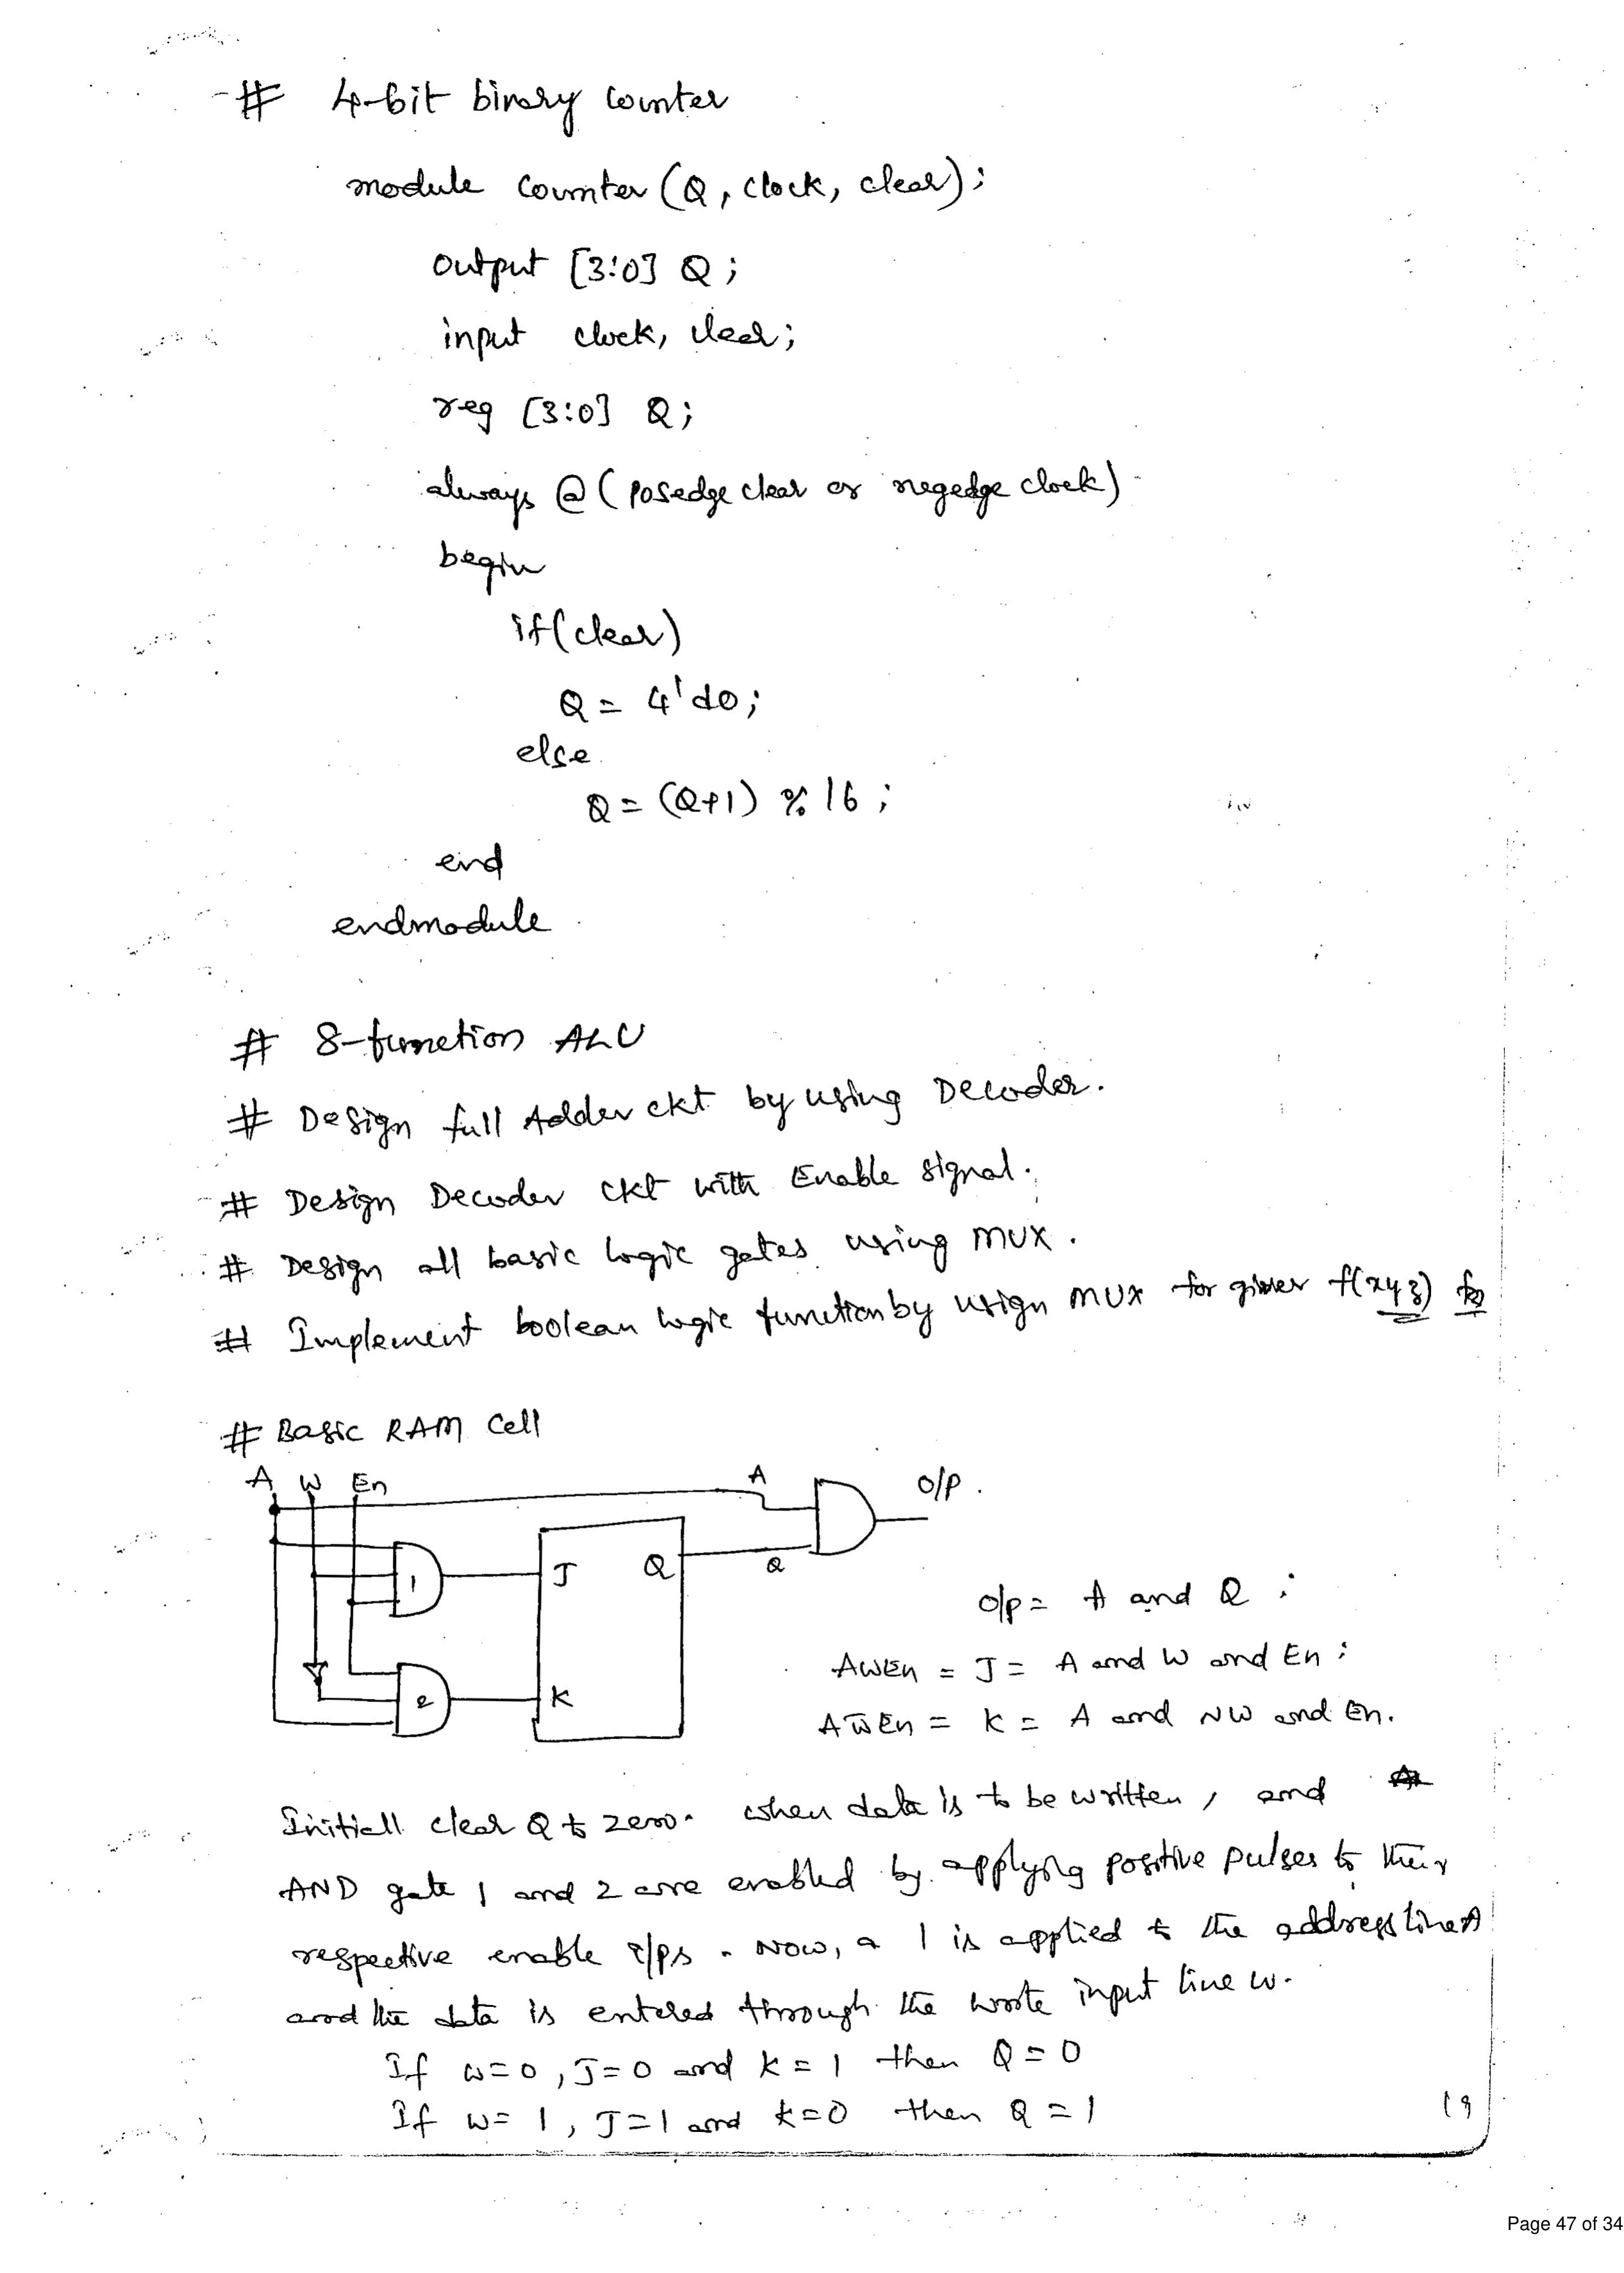 # 4-bit binary counter
module counter (Q, clock, clear);
output [3:0] Q;
input clock, clear;
reg [3:0] Q;
always @ (posedge clear or negedge clock)
begin
if(clear)
Q = 4'd0;
else
Q = (Q+1) % 16;
end
endmodule
# 8-function ALU
# Design full Adder ckt by using Decoder.
# Design Decoder ckt with Enable signal.
# Design all basic logic gates using MUX.
# Implement boolean logic function by usign MUX for given f(xyz)
# Basic RAM Cell
A W En A O/P.
1 J Q Q
2 K
O/P = A and Q ;
AWEn = J = A and W and En ;
AW̅En = K = A and NW and En.
Initiall clear Q to zero. when data is to be written, and
AND gate 1 and 2 are enabled by applying positive pulses to their
respective enable i/ps. Now, a 1 is applied to the address line A
and the data is entered through the write input line w.
If w=0, J=0 and k=1 then Q=0
If w=1, J=1 and k=0 then Q=1
19
Page 47 of 34